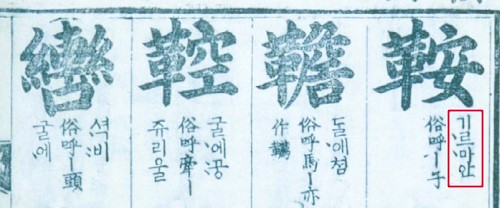 鞍
기르마안
俗呼丨子
韂
돌애쳠
俗呼馬丨亦
作
鞚
굴에공
俗呼牽丨
쥬리울
轡
셕비
俗呼丨頭
굴에